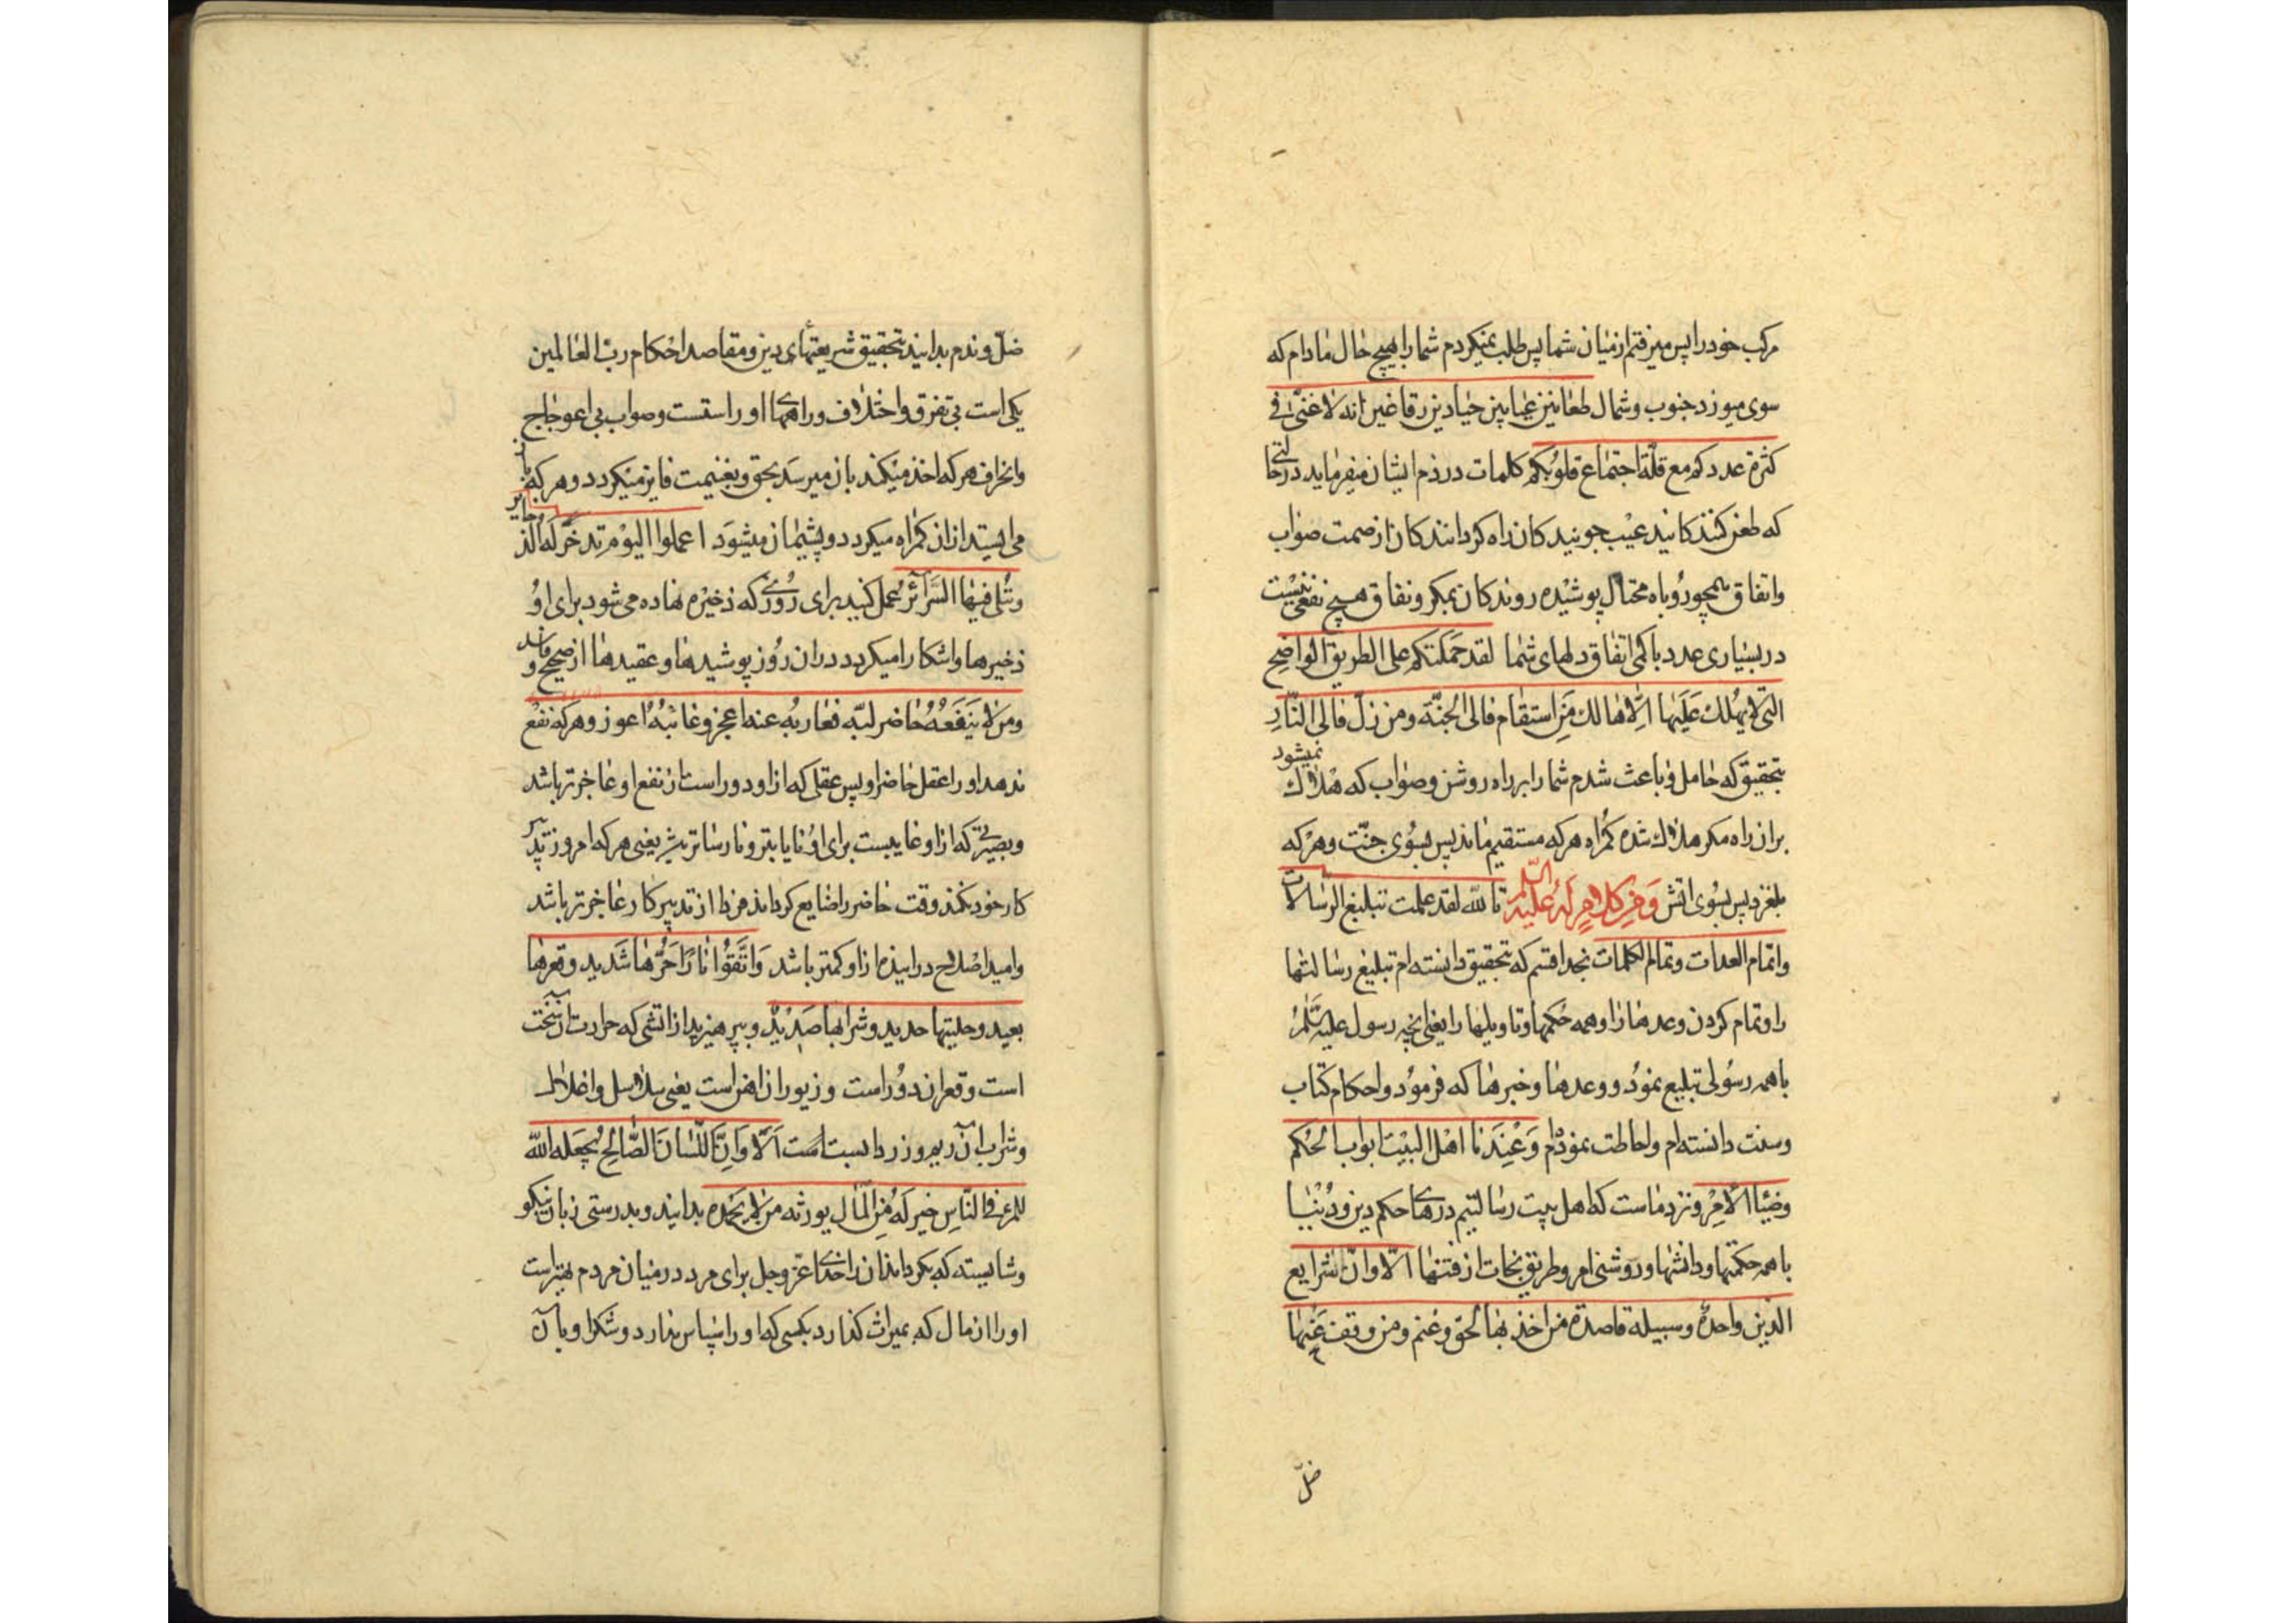 مرکب خود را پس میرفتم از میان شما پس طلب نمیکردم شما را بهیچ حال مادام که
سوی میوزد جنوب و شمال طعانین عیابین حیادین رقاغین انه لا غنی فی
کثرة عددکم مع قلة اجتماع قلوبکم کلمات در ذم ایشان میفرماید در حالتی
که طعن کنندکانید عیب جویندکان راه کردانندکان از صمت صواب
واتفاق همچو روباه محتال پوشیده روندکان بمکر و نفاق هیچ نفعی نیست
در بسیاری عدد با کمی اتفاق دلهای شما لقد حملتکم علی الطریق الواضح
التی لا یهلک علیها الا هالک من استقام فالی الجنة ومن زل فالی النار
بتحقیق که حامل و باعث شدم شما را بر راه روشن و صواب که هلاک نمیشود
بران راه مکر هلاک شده کمراه هرکه مستقیم ماند پس بسوی جنت و هرکه
بلغزد پس بسوی اتش ومن کلام له علیه السلم تالله لقد علمت تبلیغ الرسالات
واتمام العدات وتمام الکلمات بخدا قسم که بتحقیق دانسته ام تبلیغ رسالتها
را و تمام کردن وعدها را و همه حکمها و تاویلها را یعنی انچه رسول علیه السلم
با همه رسولی تبلیغ نمود و وعدها و خبرها که فرمود و احکام کتاب
وسنت دانسته ام و احاطت نموده‌ام وعندنا اهل البیت ابواب الحکم
وضیاا الامر و نزد ماست که اهل بیت رسالتیم درهای حکم دین و دنیا
با همه حکمتها و دانشها و روشنی امر و طریق نجات از فتنها الا وان شرایع
الدین واحدة وسبیله قاصدة من اخذ بها لحق وغنم ومن وقف عنها
ضل
ضل وندم بدانید بتحقیق شریعتهای دین و مقاصد احکام رب العالمین
یکی است بی تفرق و اختلاف و راههای او راستست و صواب بی اعوجاج
وانحراف هرکه اخذ میکند بان میرسد بحق و بغنیمت فایز میکردد و هرکه باز
می ایستد ازان کمراه میکردد و پشیمان میشود اعملوا لیوم تدخر له الذخایر
وتبلی فیها السرآئر عمل کنید برای روزی که ذخیره نهاده می شود برای او
ذخیرها و اشکارا میکردد دران روز پوشیدها و عقیدها از صحیح و فاسد
ومن لا ینفعه حاضر لبه فعازبه عنه اعجز وغائبه اعوز و هرکه نفع
ندهد او را عقل حاضر او پس عقلی که ازاو دور است از نفع او عاجزتر باشد
وبصیرتی که ازاو غایبست برای او نایابتر و نارساترست یعنی هرکه امروز تدبیر
کار خود نکند وقت حاضر را ضایع کرداند فردا از تدبیر کار عاجزتر باشد
وامید اصلاح در اینده ازاو کمتر باشد واتقوا نارا حرها شدید وقعرها
بعید وحلیتها حدید وشرابها صدید و بپرهیزید از اتشی که حرارت ان سخت
است و قعر ان دور است و زیور ان از اهن است یعنی سلاسل و اغلال
وشراب آن ریم و زرداب است الا وان اللسان الصالح یجعله الله
للمرء فی الناس خیر له من المال یورثه من لا یحمده بدانید و بدرستی زبان نیکو
وشایسته که بکرداند ان را خدای عز وجل برای مرد در میان مردم بهترست
او را از مال که بمیراث کذارد بکسی که او را سپاس ندارد و شکر او بآن